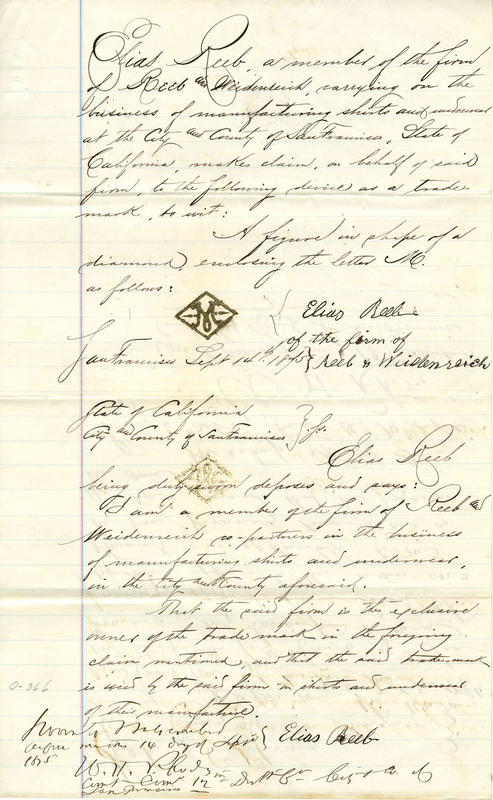 Elias Reeb, a member of the firm
of Reeb and Weidenreich, carrying on the
business of manufacturing shirts and underwear
at the City and County of San Francisco, State of
California, makes claim, on behalf of said
firm, to the following device as a trade
mark, to wit:
A figure in shape of a
diamond, enclosing the letter M.
as follows:
M
Elias Reeb
of the firm of
San Francisco Sept 14th 1875 } Reeb & Weidenreich
State of California
City and County of San Francisco } ss.
Elias Reeb
being duly sworn deposes and says:
I am a member of the firm of Reeb and
Weidenreich co-partners in the business
of manufacturing shirts and underwear,
in the City and County aforesaid.
That the said firm is the exclusive
owner of the trade mark in the foregoing
claim mentioned, and that the said trade mark
is used by the said firm on shirts and underwear
of their manufacture.
0-366
Sworn & subscribed
before me this 14 day of Sept } Elias Reeb
1875
W. H.
San Francisco